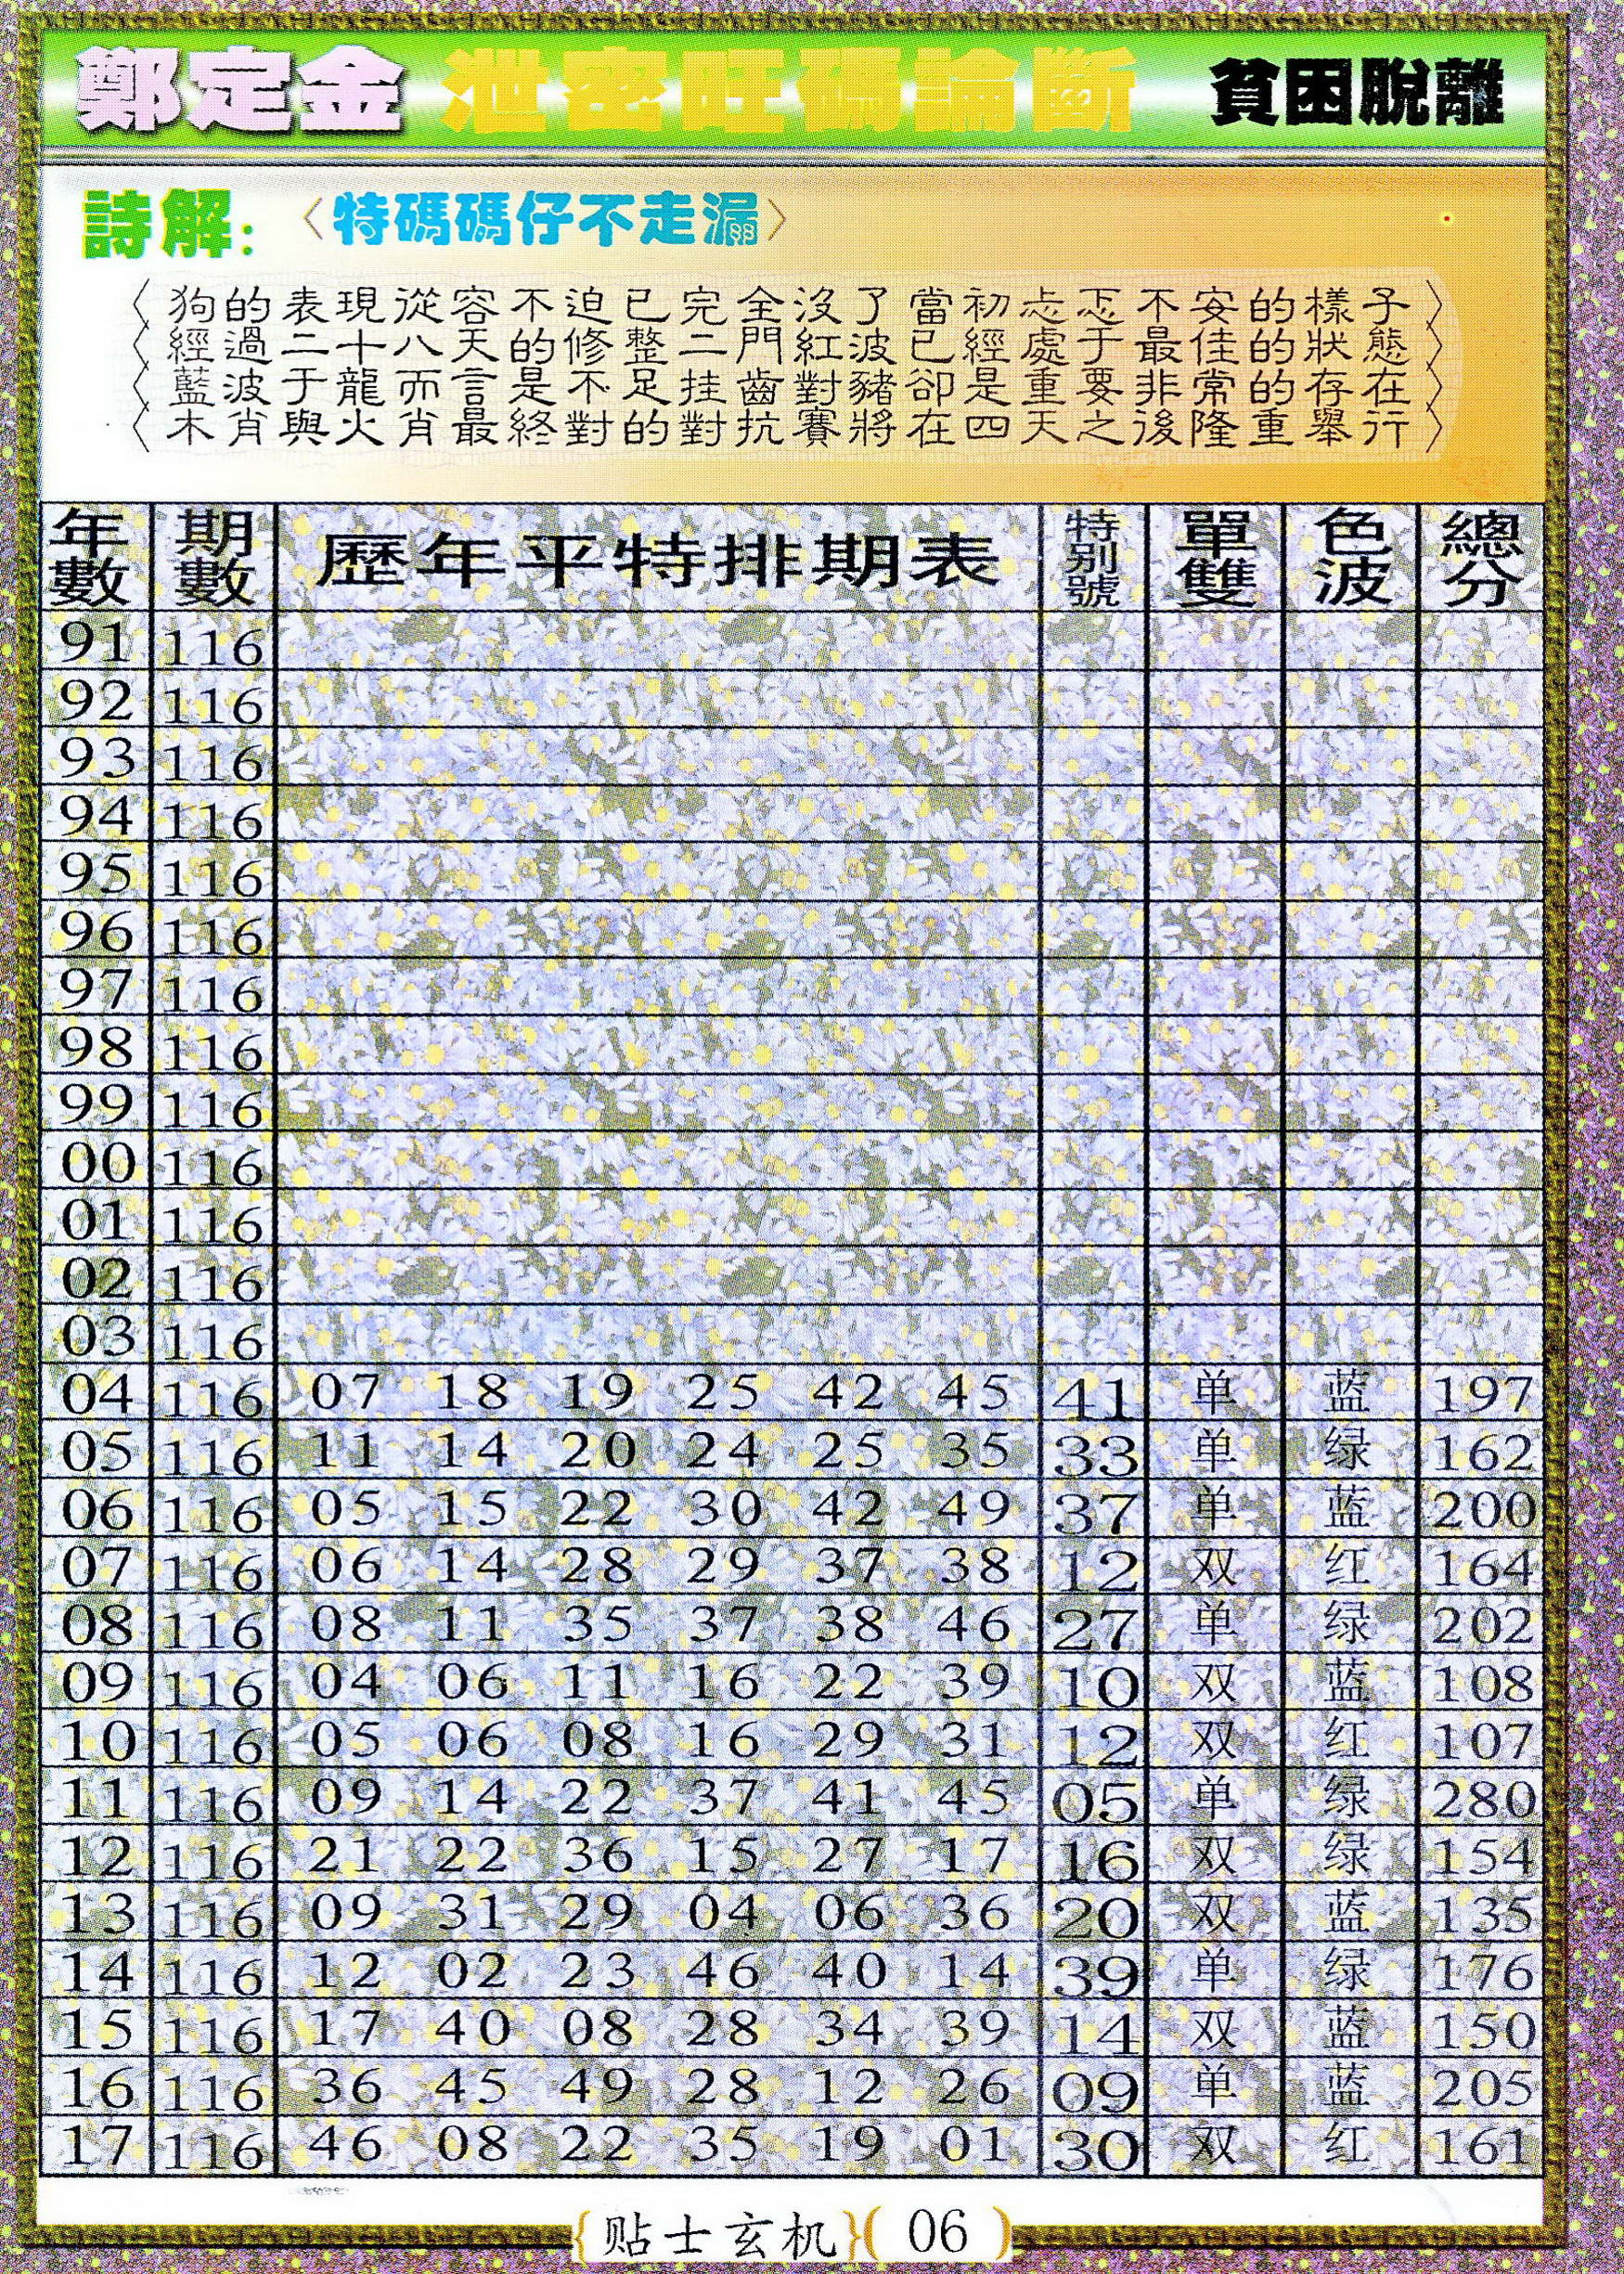 鄭定金 泄密旺碼論斷 貧困脫離
詩解:〈特碼碼仔不走漏〉
〈狗的表現從容不迫已完全沒了當初忐忑不安的樣子〉
〈經過二十八天的修整二門紅波已經處于最佳的狀態〉
〈藍波于龍而言是不足挂齒對豬卻是重要非常的存在〉
〈木肖與火肖最終對的對抗賽將在四天之後隆重舉行〉
年數 期數 歷年平特排期表 特别號 單雙 色波 總分
91 116
92 116
93 116
94 116
95 116
96 116
97 116
98 116
99 116
00 116
01 116
02 116
03 116
04 116 07 18 19 25 42 45 41 单 蓝 197
05 116 11 14 20 24 25 35 33 单 绿 162
06 116 05 15 22 30 42 49 37 单 蓝 200
07 116 06 14 28 29 37 38 12 双 红 164
08 116 08 11 35 37 38 46 27 单 绿 202
09 116 04 06 11 16 22 39 10 双 蓝 108
10 116 05 06 08 16 29 31 12 双 红 107
11 116 09 14 22 37 41 45 05 单 绿 280
12 116 21 22 36 15 27 17 16 双 绿 154
13 116 09 31 29 04 06 36 20 双 蓝 135
14 116 12 02 23 46 40 14 39 单 绿 176
15 116 17 40 08 28 34 39 14 双 蓝 150
16 116 36 45 49 28 12 26 09 单 蓝 205
17 116 46 08 22 35 19 01 30 双 红 161
{贴士玄机}(06)